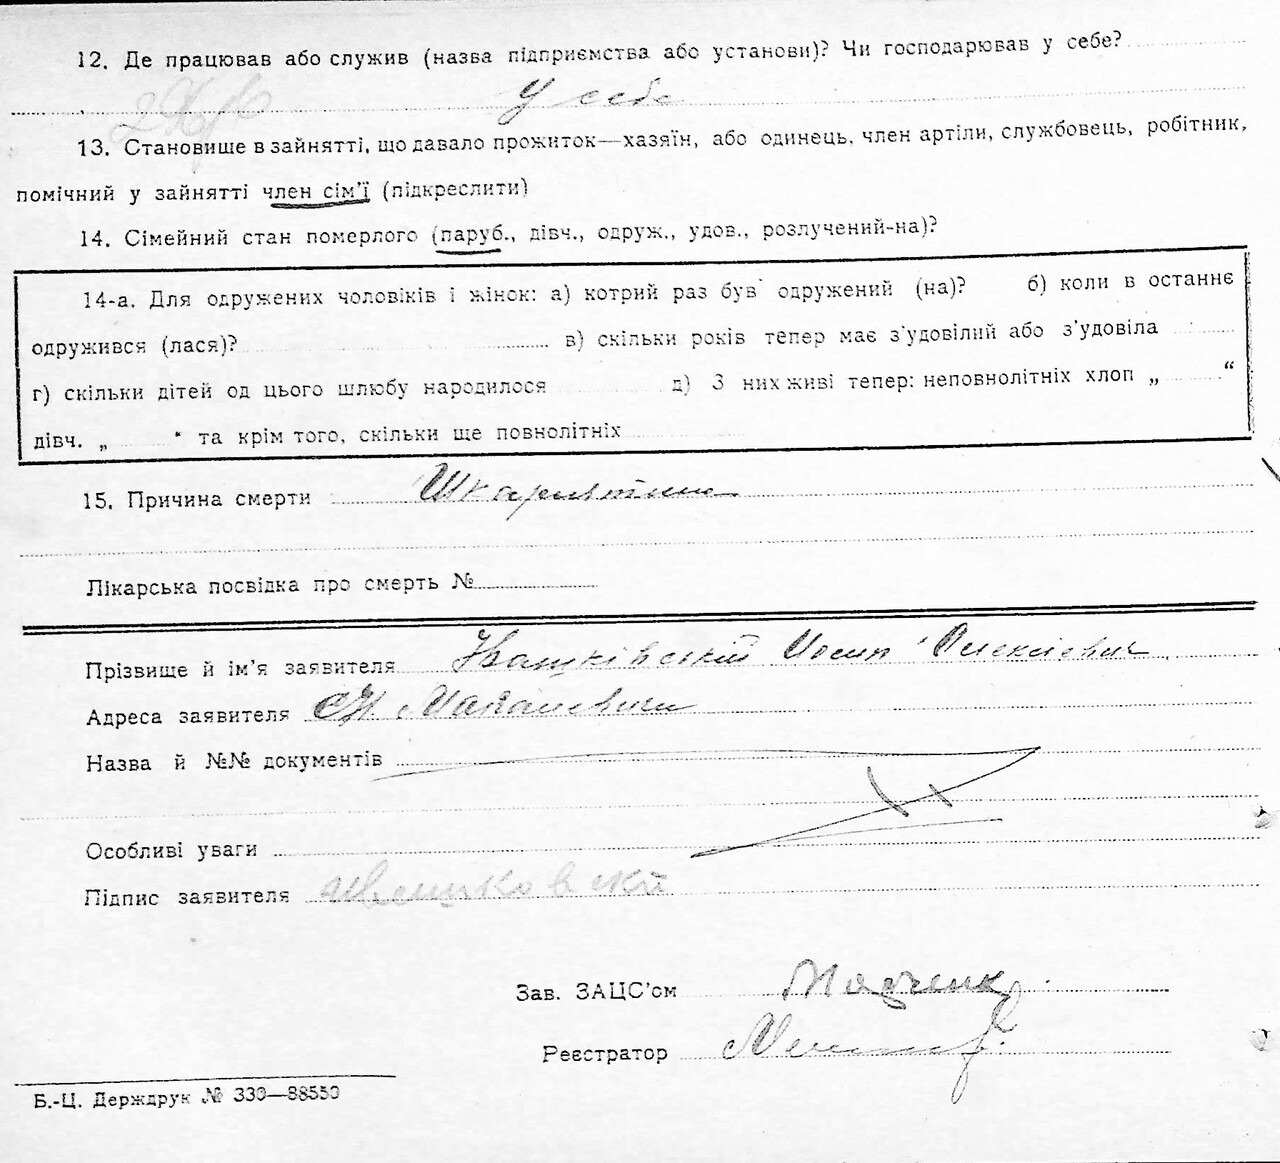 12. Де працював або служив (назва підприємства або установи)? Чи господарював у себе?
У себе
13. Становище в зайнятті, що давало прожиток—хазяїн, або одинець, член артіли, службовець, робітник,
помічний у зайнятті член сім'ї (підкреслити)
14. Сімейний стан померлого (паруб., дівч., одруж., удов., розлучений-на)?
14-а. Для одружених чоловіків і жінок: а) котрий раз був одружений (на)? б) коли в останнє
одружився (лася)? в) скільки років тепер має з'удовілий або з'удовіла
г) скільки дітей од цього шлюбу народилося д) З них живі тепер: неповнолітніх хлоп „ “
дівч. „ “ та крім того, скільки ще повнолітніх
15. Причина смерти Шкарлятина
Лікарська посвідка про смерть №
Прізвище й ім'я заявителя Івашківський Йосип Олексієвич
Адреса заявителя
Назва й №№ документів
Особливі уваги
Підпис заявителя
Зав. ЗАЦС'ом
Реєстратор
Б.-Ц. Держдрук № 330—88550